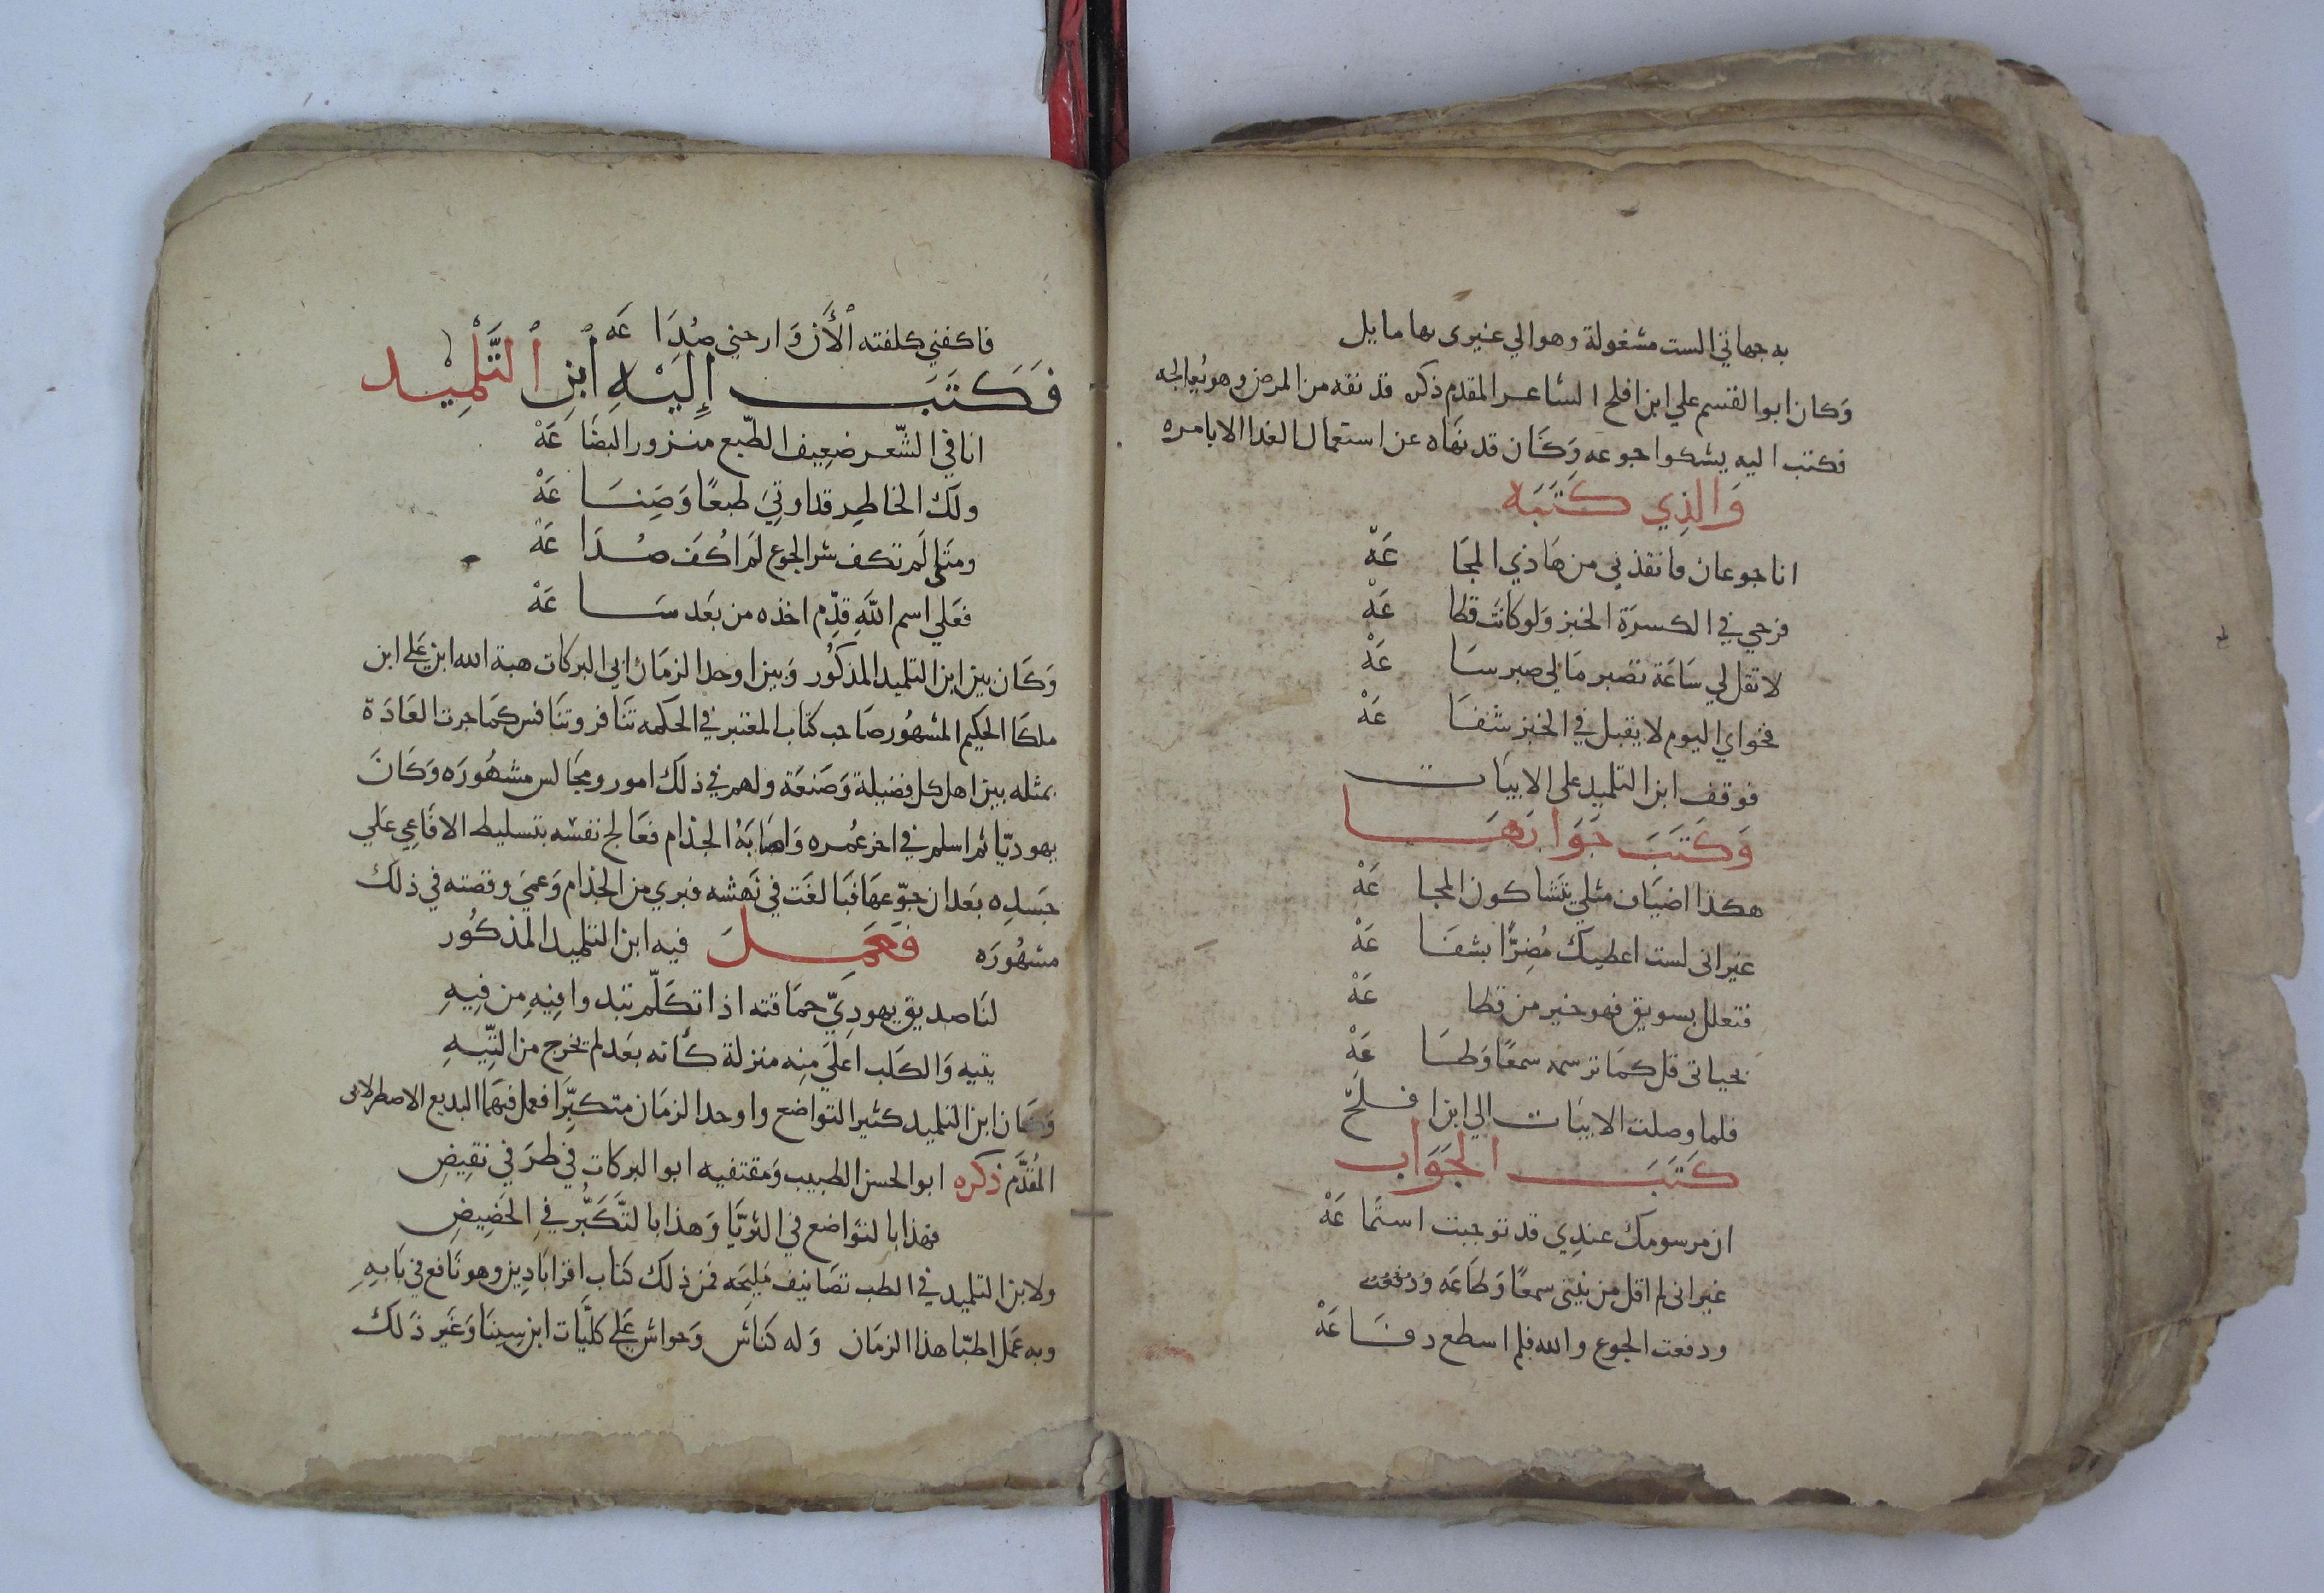 به جهاتي الست مشغولة وهو الي غيرى بها مايل
وَكان ابو القسم علي ابن افلح الشاعر المقدم ذكره قد نقه من المرض وهو يُعالجه
فكتب اليه يشكوا جوعه وَكَان قد نهَاه عن استعمال الغدا الا بامره
وَالذِي كَتَبَه
انا جوعان فانقذني من هَاذي المجَا عَهْ
فرجي في الكسرَة الخبز وَلو كانَت قطا عَهْ
لا تقل لي سَاعَة تصبر مَا لي صبر سَا عَهْ
فخواي اليوم لا يقبل في الخبز شفَا عَهْ
فوقف ابن التلميد على الابيَات
وَكَتَبَ جَوَابَهَا
هكذا اضيَاف مثلي يتَشَاكون المجا عَهْ
غير انى لست اعطيكَ مُضِرًّا بشفَا عَهْ
فتعلل بسويق فهو خير من قطا عَهْ
بحياتى قل كمَا ترسمه سمعًا وَطَا عَهْ
فلما وصلت الابيَات الي ابن افلح
كَتَبَ الجَوَاب
ان مرسومك عندِي قد توجبت استمَا عَهْ
غير انى لم اقل من نيتى سمعًا وَطَاعَه
ودفعت الجوع والله فلم اسطع دفَا عَهْ
فاكفني كلفته الأن وَارحني صُدَا عَه
فَكَتَبَ إِلَيْهِ ابْنِ التَّلْمِيْد
انا في الشّعر ضعِيف الطّبع منزور البضَا عَهْ
ولكَ الخاطِر قد اوتيَ طبعًا وَصِنَا عَهْ
ومتى لَم تكف شر الجوع لَم اكُف صُدَا عَهْ
فعَلي اسم اللهَ قدِّم اخذه من بَعَد سَا عَهْ
وَكَان بين ابن التلميد المذكُور وَبين اوحد الزمَان ابي البركات هبة الله ابن عَلي ابن
ملكَا الحكيم المشهُور صَاحب كتاب المعتبر في الحكمه تنَافر وتنَافس كمَا جرت العَادَة
بمثله بين اهل كل فضيلة وَصَنعَة ولهم في ذلكَ امور ومجَالس مشهُورَه وَكَانَ
يهوديّا ثم اسلم في اخر عُمره وَاصَابَهُ الجذام فعَالج نفسَه بتسليط الافَاعِي عَلي
جَسدِه بعَد ان جوّعهَا فبَالغَت في نَهشه فبري من الجذام وَعميَ وقصته في ذلكَ
مشهُورَه فَعَمِلَ فيه ابن التلميد المذكُور
لنَا صديق يهودِيّ حمَاقته اذا تكَلّم تبدوا فِيهِ مِن فِيهِ
يتيه وَالكَلب اعلَي مِنه منزلة كَأنه بعَد لم يخرج من التِّيهِ
وَكَان ابن التلميد كثير التواضع واوحد الزمَان متكبِّرًا فعمل فيهمَا البديع الاصطرلابى
المُقدَّم ذكره ابو الحسن الطبيب وَمقتفيه ابو البركات في طرَفي نقِيضِ
فهذا بالتوَاضع في الثرَيّا وَهذا بالتَّكَبُّر في الحَضِيضِ
ولابن التلميد في الطب تصَانيف مَليحَه فمن ذلك كتاب اقرابَادِين وهو نَافع في بَابِهِ
وبه عَمَل اطبّا هذا الزمَان وَله كنَاش وَحواش عَلي كليَّات ابن سِينَا وَغَير ذَلك